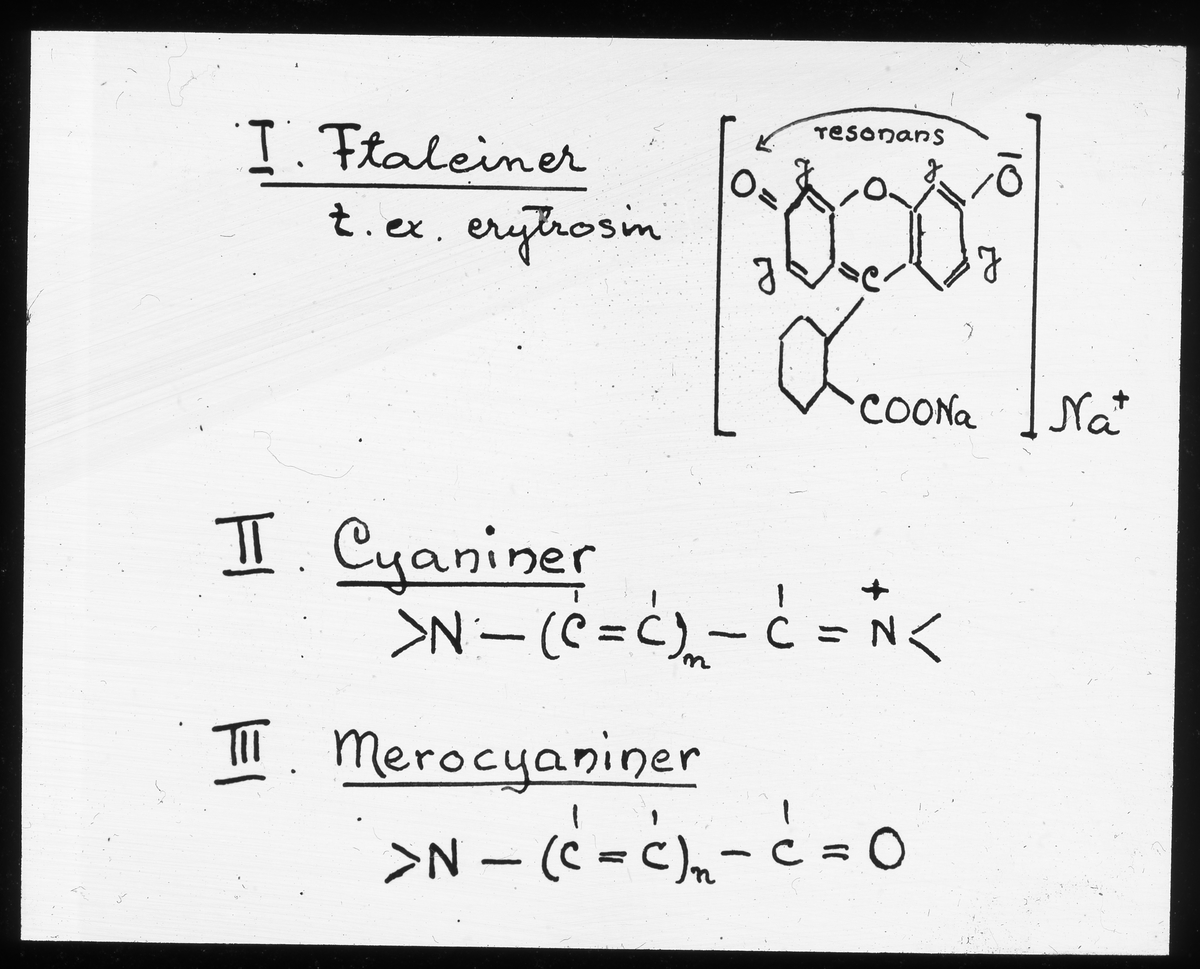 I. Ftaleiner
t. ex. erytrosin
resonans
O J O J O̅
J C J
COONa
Na⁺
II. Cyaniner
>N — (C = C)n — C = N⁺<
III. Merocyaniner
>N — (C = C)n — C = O